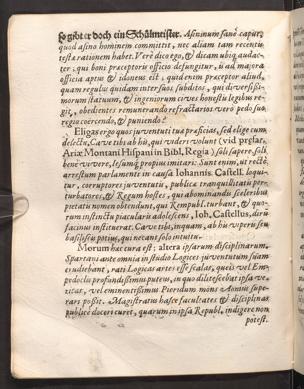 So gibt er doch ein Schülmeister. Asininum sanè caput,
quod asino hominem committit, nec aliam tam recentiu
testa rationem habet. Verè dico ego, & dicam ubiq; audac-
ter, qui boni præceptoris officio defungitur, is ad majora
officia aptus & idoneus est, quid enim præceptor aliud,
quam regulus quidam inter suos subditos, qui diversissi-
morum statuum, & ingeniorum cives honestis legibus re-
git, obedientes remunerando refractarios verò pedo suo
regio coërcendo, & puniendo?
Eligas ergo quos juventuti tuæ præficias, sed elige cum
delectu, Cave tibi ab his, qui videri volunt (vid. præfar.
Ariæ Montani Hispani in Bibl. Regia) soli sapere, soli
benè vivere, Jesumq; propius imitari: Sunt enim, ut rectè
arrestum parlamenti in causa Iohannis. Castell. loqui-
tur, corruptores juventutis, publicæ tranquilitatis per-
turbatores, & Regum hostes, qui abominandū sceleribus
pietatis nomen obtendunt, qui Rempubl. turbant, & quo-
rum instinctu piacularis adolescens, Ioh. Castellus, diri
facinus instituerat. Cave tibi, inquam, ab his viperis seu
basiliscis potius, qui net ant solo intuitu.
Morum hæc cura est; altera ipsarum disciplinarum.
Spartanos ante omnia in studio Logices juventutem suam
erudiebant, rati Logicas artes esse scalas, queis vel Em-
pedoclis profundissimus puteus, in quo dilitescebat ipsa ve-
ritas, vel eminentissimus Pieridum mons Aonius supe-
rari possit. Magistratus hasce facultates & disciplinas
publicè doceri curet, quarum in ipsa Republ. indigere non
potest.